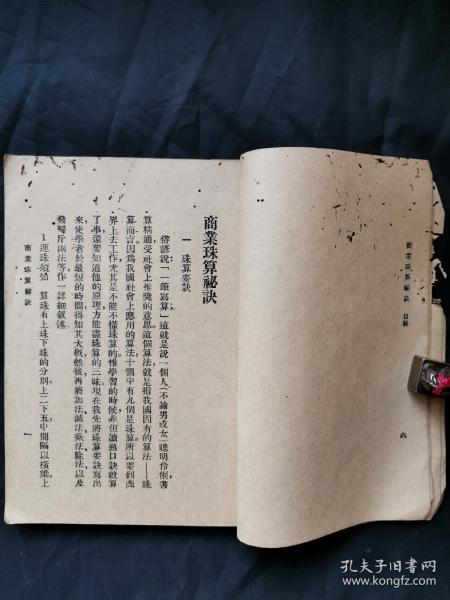 商業珠算祕訣 目錄
六
商業珠算祕訣
一 珠算要訣
俗諺說「一筆寫算」這就是說一個人(不論男或女)聰明伶俐書
算精通受社會上推獎的意思這個算法就是指我國固有的算法——珠
算而言因爲我國社會上應用的算法十個中有九個是珠算所以要到商
界上去工作尤其是不能不懂珠算的惟學習的時候非但讀熟口訣就算
了事還要知道他的原理方能盡珠算的三昧現在我先將珠算要訣寫出
來使學者於最短的時間得知其大概然後再將加法減法乘法除法以及
飛歸斤兩法等作一詳細敘述
1運珠須知 算珠有上珠下珠的分別上二下五中間隔以橫樑上
商業珠算祕訣
一
孔夫子旧书网
www.kongfz.com